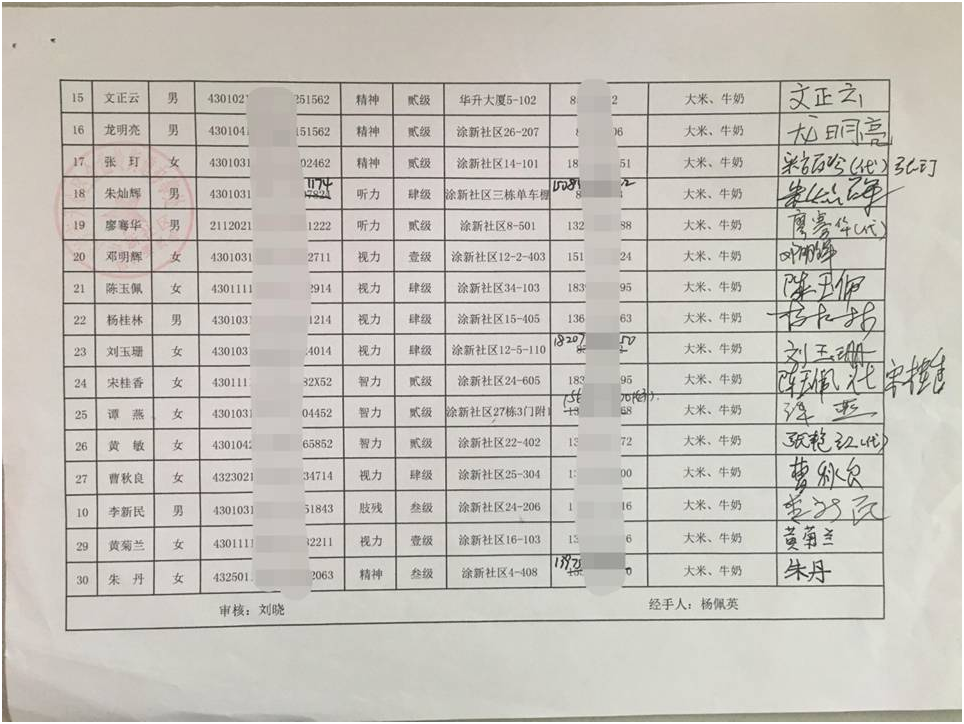 15 文正云 男 4301021 251562 精神 贰级 华升大厦5-102 8 2 大米、牛奶 文正云
16 龙明亮 男 4301041 151562 精神 贰级 涂新社区26-207 8 06 大米、牛奶 龙明亮
17 张 玎 女 4301031 02462 精神 贰级 涂新社区14-101 18 51 大米、牛奶 (代) 张玎
18 朱灿辉 男 4301031 1174 听力 肆级 涂新社区三栋单车棚 1508 2 大米、牛奶
19 廖骞华 男 2112021 1222 听力 贰级 涂新社区8-501 132 88 大米、牛奶 廖骞华(代)
20 邓明辉 女 4301031 2711 视力 壹级 涂新社区12-2-403 151 24 大米、牛奶 邓明辉
21 陈玉佩 女 4301111 2914 视力 肆级 涂新社区34-103 183 95 大米、牛奶 陈玉佩
22 杨桂林 男 4301031 1214 视力 肆级 涂新社区15-405 136 63 大米、牛奶 杨桂林
23 刘玉珊 女 430103 4014 视力 肆级 涂新社区12-5-110 18207 50 大米、牛奶 刘玉珊
24 宋桂香 女 430111 82X52 智力 贰级 涂新社区24-605 183 95 大米、牛奶 陈玉佩代 宋桂香
25 谭 燕 女 4301031 04452 智力 贰级 涂新社区27栋3门附1 13 68 大米、牛奶 谭燕
26 黄 敏 女 4301042 65852 智力 贰级 涂新社区22-402 13 72 大米、牛奶 张艳红(代)
27 曹秋良 女 4323021 34714 视力 肆级 涂新社区25-304 1 00 大米、牛奶 曹秋良
10 李新民 男 4301031 51843 肢残 叁级 涂新社区24-206 1 16 大米、牛奶 李新民
29 黄菊兰 女 4301111 2211 视力 壹级 涂新社区16-103 13 6 大米、牛奶 黄菊兰
30 朱 丹 女 432501 2063 精神 叁级 涂新社区4-408 大米、牛奶 朱丹
审核：刘晓 经手人：杨佩英